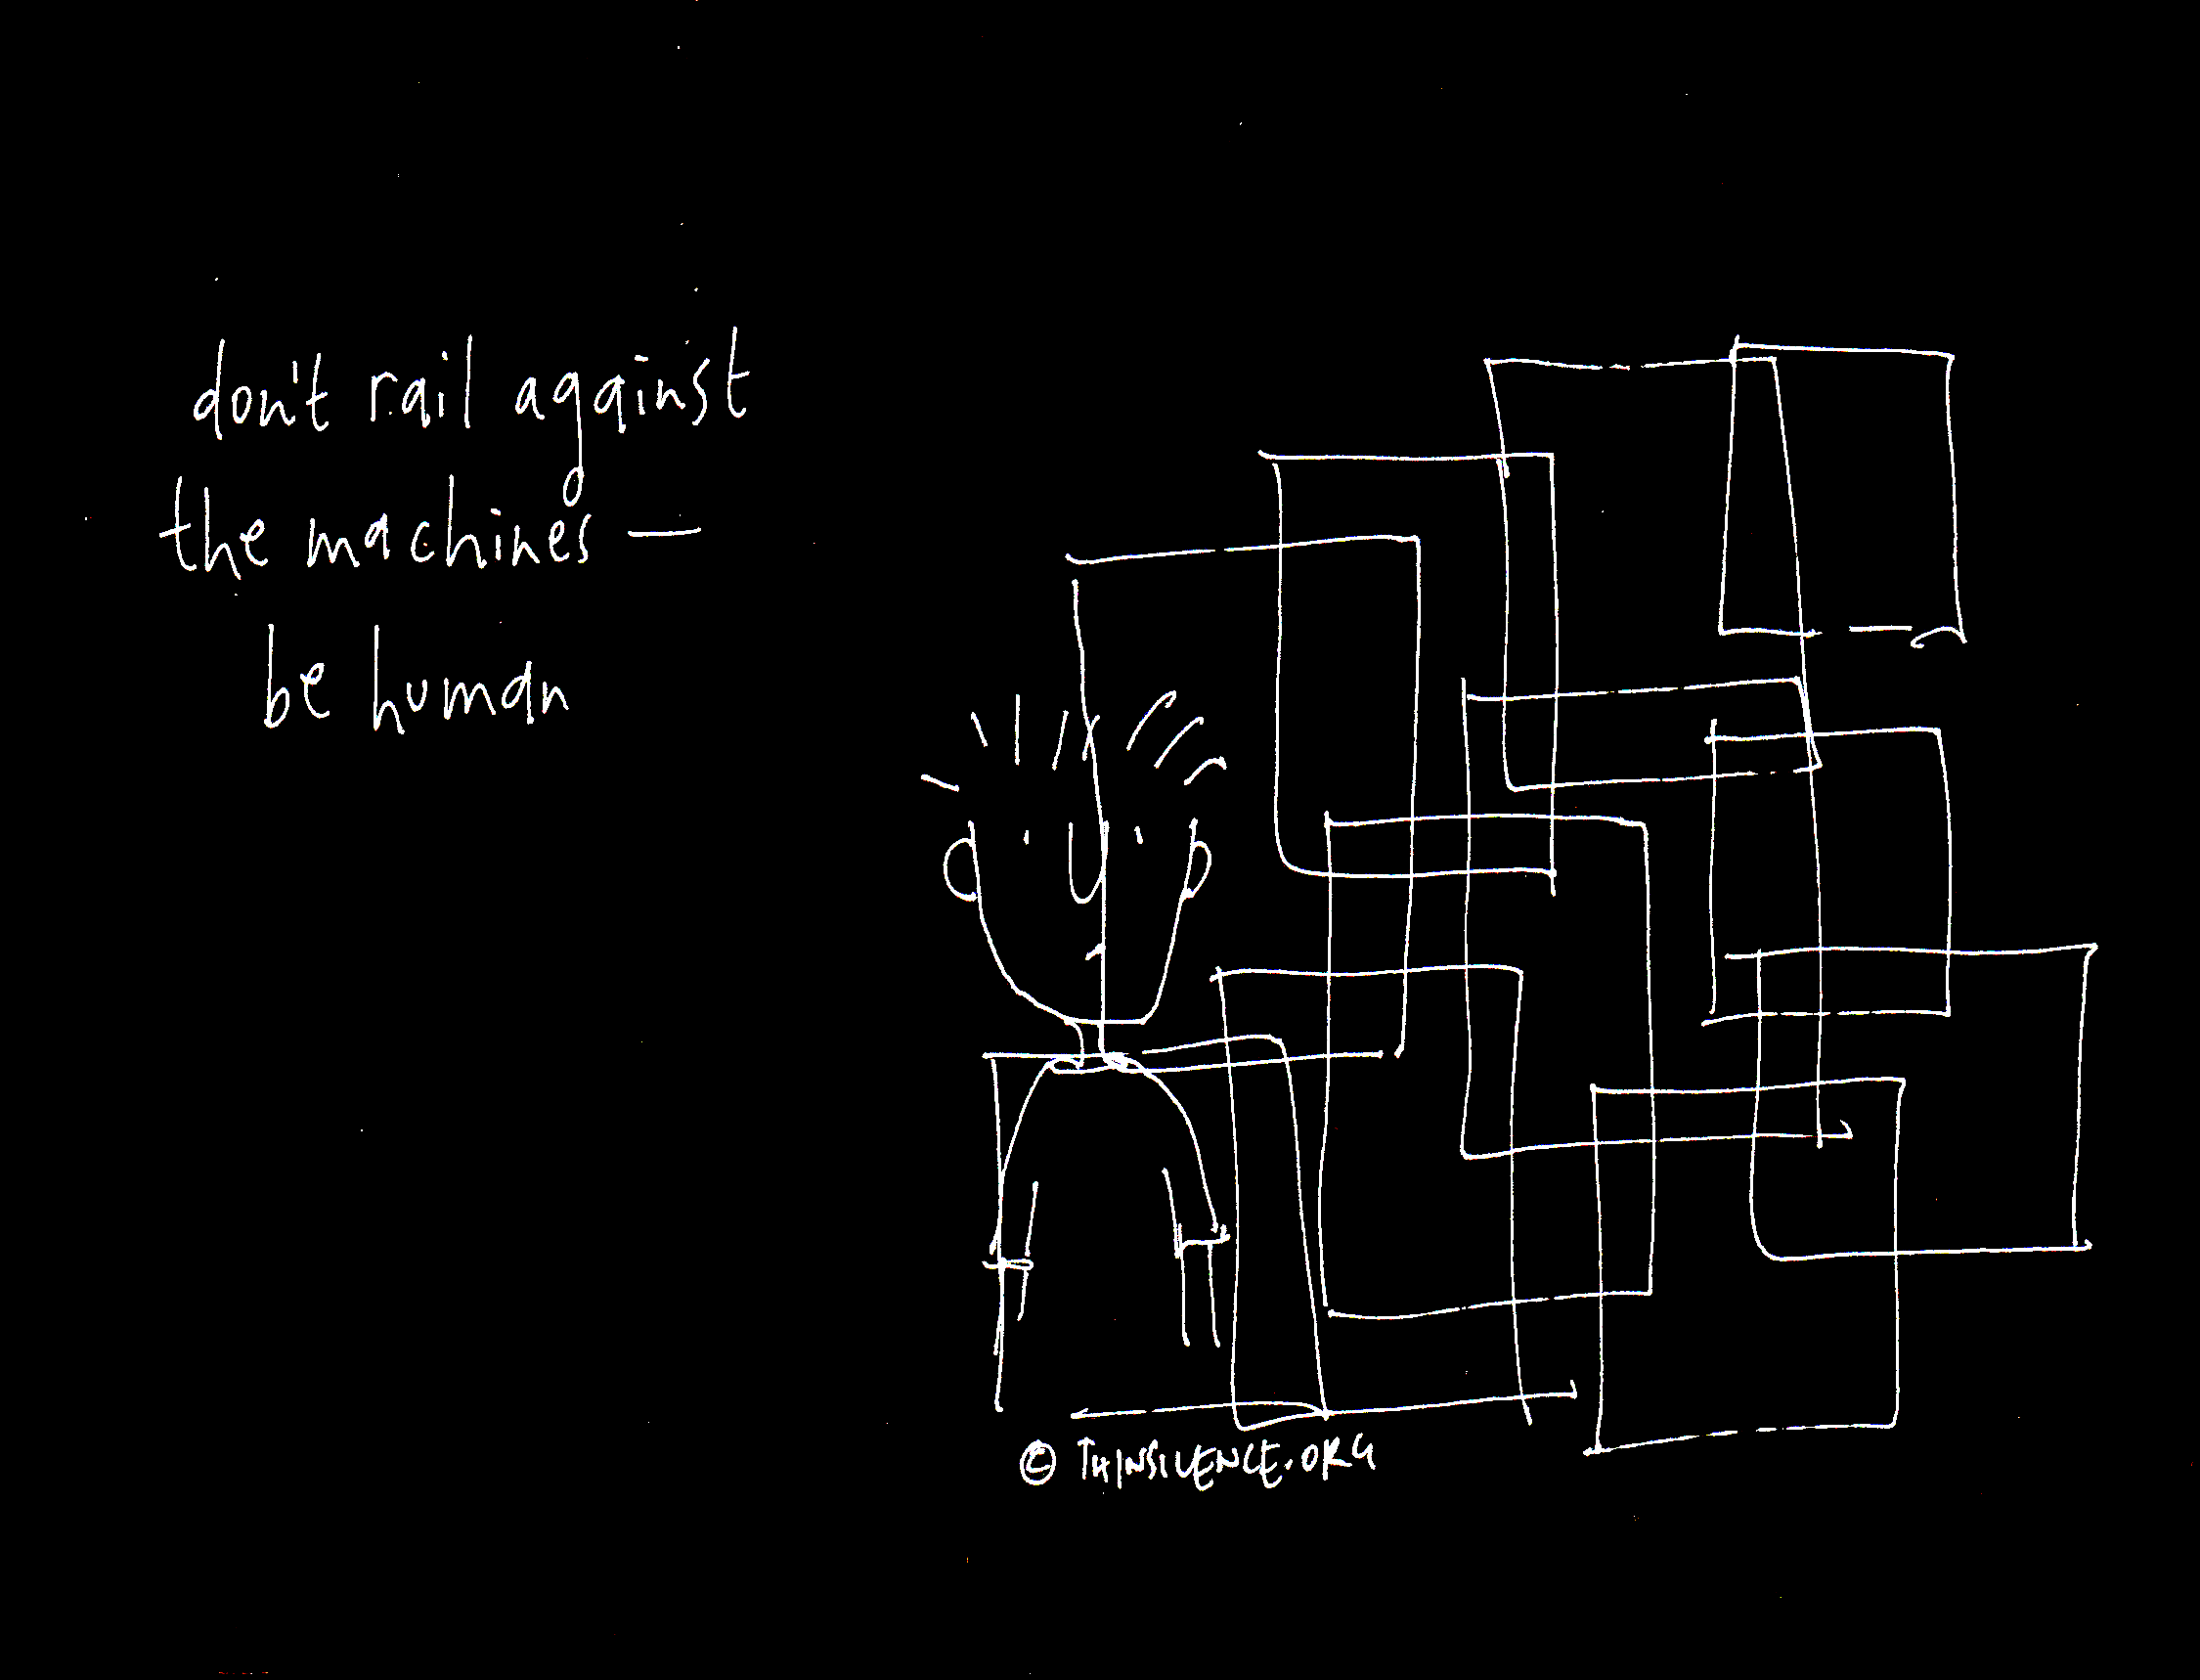 don't rail against
the machines —
be human
© THINSILENCE.ORG